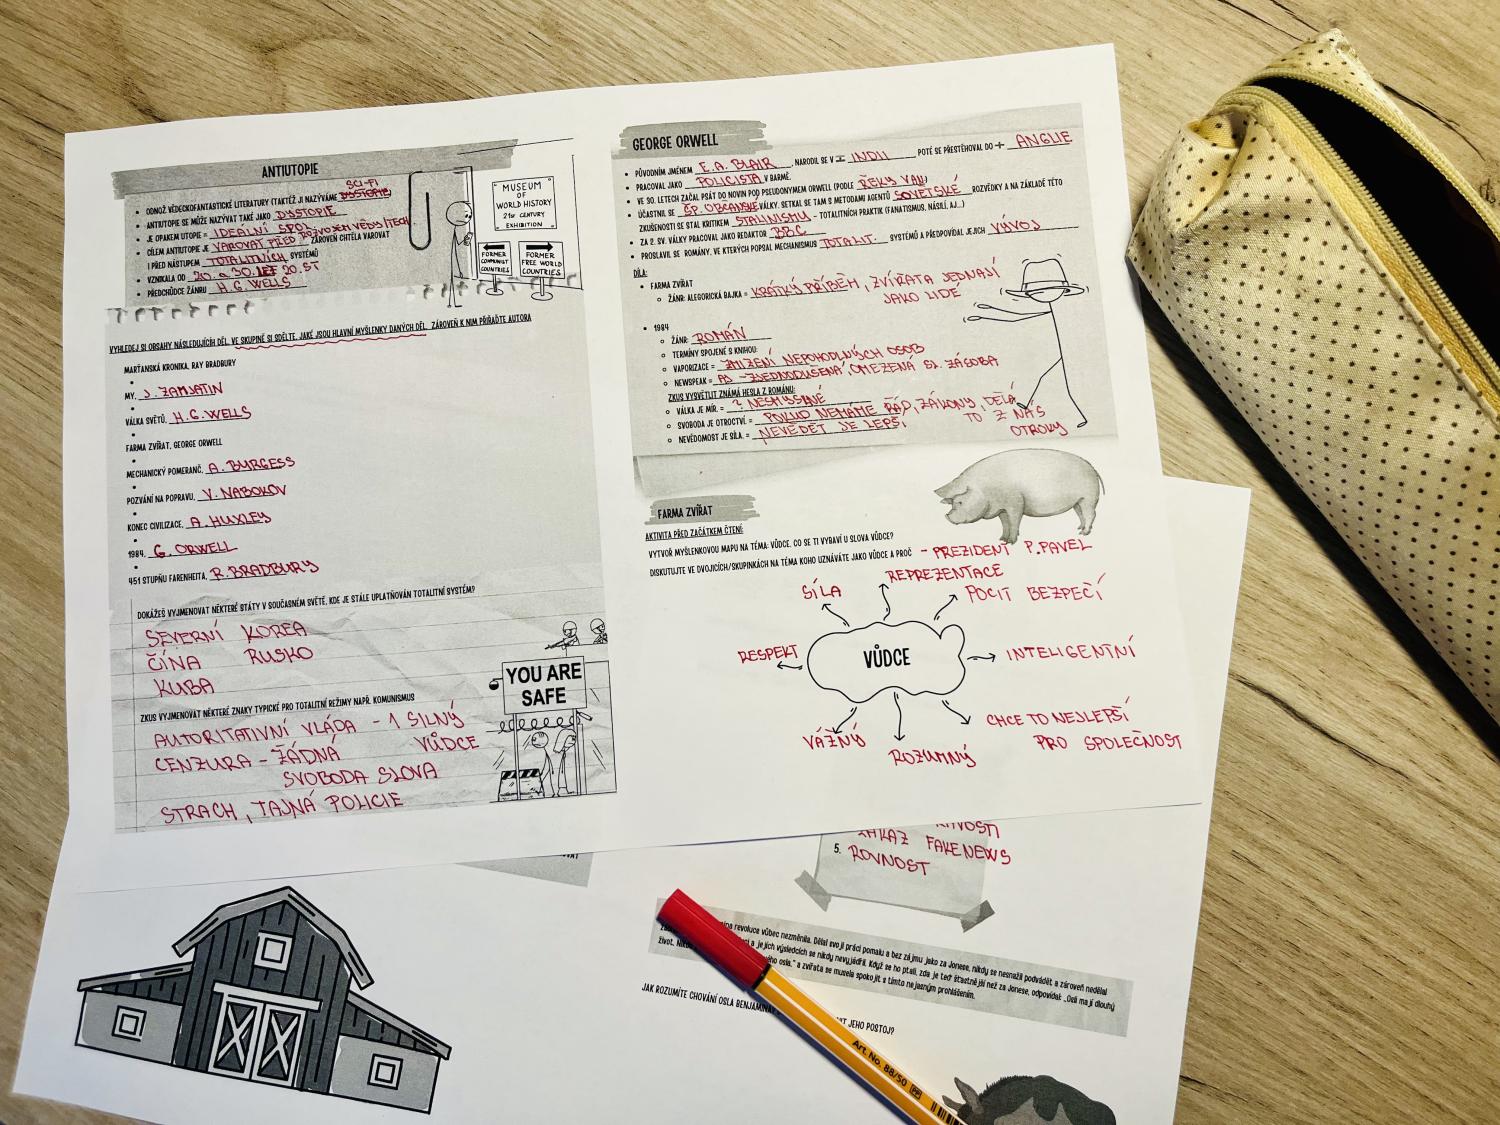 ANTIUTOPIE
SCI-FI
ODNOŽ VĚDECKOFANTASTICKÉ LITERATURY (TAKTÉŽ JI NAZÝVÁME DYSTOPIE
ANTIUTOPIE SE MŮŽE NAZÝVAT TAKÉ JAKO DYSTOPIE
JE OPAKEM UTOPIE = IDEÁLNÍ SPOL.
CÍLEM ANTIUTOPIE JE VAROVAT PŘED ROZVOJEM VĚDY/TECH
ZÁROVEŇ CHTĚLA VAROVAT
I PŘED NÁSTUPEM TOTALITNÍCH SYSTÉMŮ
VZNIKALA OD 20. a 30. LET 20. ST
PŘEDCHŮDCE ŽÁNRU H. G. WELLS
MUSEUM
OF
WORLD HISTORY
21st CENTURY
EXHIBITION
FORMER
COMMUNIST
COUNTRIES
FORMER
FREE WORLD
COUNTRIES
VYHLEDEJ SI OBSAHY NÁSLEDUJÍCÍH DĚL. VE SKUPINĚ SI SDĚLTE, JAKÉ JSOU HLAVNÍ MYŠLENKY DANÝCH DĚL. ZÁROVEŇ K NIM PŘIŘAĎTE AUTORA
MARŤANSKÁ KRONIKA, RAY BRADBURY
MY, J. ZAMJATIN
VÁLKA SVĚTŮ, H.G. WELLS
FARMA ZVÍŘAT, GEORGE ORWELL
MECHANICKÝ POMERANČ, A. BURGESS
POZVÁNÍ NA POPRAVU, V. NABOKOV
KONEC CIVILIZACE, A. HUXLEY
1984, G. ORWELL
451 STUPŇU FARENHEITA, R. BRADBURY
DOKÁŽEŠ VYJMENOVAT NĚKTERÉ STÁTY V SOUČASNÉM SVĚTĚ, KDE JE STÁLE UPLATŇOVÁN TOTALITNÍ SYSTÉM?
SEVERNÍ KOREA
ČÍNA RUSKO
KUBA
ZKUS VYJMENOVAT NĚKTERÉ ZNAKY TYPICKÉ PRO TOTALITNÍ REŽIMY NAPŘ. KOMUNISMUS
AUTORITATIVNÍ VLÁDA - 1 SILNÝ
VŮDCE
CENZURA - ŽÁDNÁ
SVOBODA SLOVA
STRACH, TAJNÁ POLICIE
YOU ARE
SAFE
GEORGE ORWELL
PŮVODNÍM JMÉNEM E. A. BLAIR, NARODIL SE V I INDII POTÉ SE PŘESTĚHOVAL DO + ANGLIE
PRACOVAL JAKO POLICISTA V BARMĚ.
VE 30. LETECH ZAČAL PSÁT DO NOVIN POD PSEUDONYMEM ORWELL (PODLE ŘEKY UK)
ÚČASTNIL SE ŠP. OBČANSKÉ VÁLKY. SETKAL SE TAM S METODAMI AGENTŮ SOVĚTSKÉ ROZVĚDKY A NA ZÁKLADĚ TÉTO
ZKUŠENOSTI SE STAL KRITIKEM STALINISMU - TOTALITNÍCH PRAKTIK (FANATISMUS, NÁSILÍ, AJ...)
ZA 2. SV. VÁLKY PRACOVAL JAKO REDAKTOR BBC
PROSLAVIL SE ROMÁNY, VE KTERÝCH POPSAL MECHANISMUS TOTALIT. SYSTÉMŮ A PŘEDPOVÍDAL JEJICH VÝVOJ
DÍLA:
FARMA ZVÍŘAT
ŽÁNR: ALEGORICKÁ BAJKA = KRÁTKÝ PŘÍBĚH, ZVÍŘATA JEDNAJÍ
JAKO LIDÉ
1984
ŽÁNR: ROMÁN
TERMÍNY SPOJENÉ S KNIHOU:
VAPORIZACE = ZMIZENÍ NEPOHODLNÝCH OSOB
NEWSPEAK = AJ - ZJEDNODUŠENÁ, OMEZENÁ SL. ZÁSOBA
ZKUS VYSVĚTLIT ZNÁMÁ HESLA Z ROMÁNU:
VÁLKA JE MÍR. = ? NESMYSLNÉ
SVOBODA JE OTROCTVÍ = POKUD NEMÁME ŘÁD, ZÁKONY, DĚLÁ
TO Z NÁS
OTROKY
NEVĚDOMOST JE SÍLA. = NEVĚDĚT JE LEPŠÍ
FARMA ZVÍŘAT
AKTIVITA PŘED ZAČÁTKEM ČTENÍ:
VYTVOŘ MYŠLENKOVOU MAPU NA TÉMA: VŮDCE. CO SE TI VYBAVÍ U SLOVA VŮDCE?
DISKUTUJTE VE DVOJICÍCH/SKUPINKÁCH NA TÉMA KOHO UZNÁVÁTE JAKO VŮDCE A PROČ - PREZIDENT P. PAVEL
SÍLA
REPREZENTACE
POCIT BEZPEČÍ
RESPEKT
VŮDCE
INTELIGENTNÍ
VÁŽNÝ
ROZUMNÝ
CHCE TO NEJLEPŠÍ
PRO SPOLEČNOST
ZÁKAZ FAKENEWS
5. ROVNOST
revoluce vůbec nezměnila. Dělal svoji práci pomalu a bez zájmu jako za Jonese, nikdy se nesnažil podvádět a zároveň nedělal
a jejích výsledcích se nikdy nevyjádřil. Když se ho ptali, zda je teď šťastnější než za Jonese, odpovídal: „Osli mají dlouhý
život. osla." a zvířata se musela spokojit s tímto nejasným prohlášením.
JAK ROZUMÍTE CHOVÁNÍ OSLA JEHO POSTOJ?
Art. No. 88/50